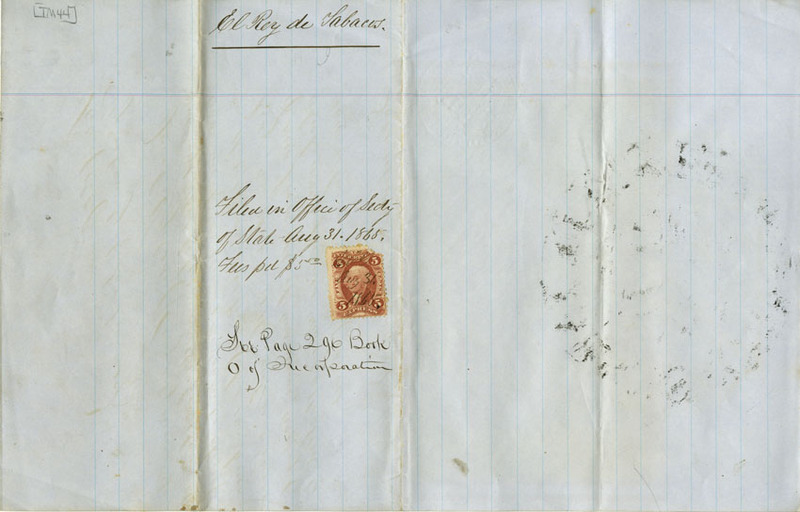 [TM44]
El Rey de Tabacos.
Filed in Office of Secty
of State Aug 31. 1865.
Fees pd $5.00
5 5
5 5
EXPRESS
See Page 296 Book
O of Incorporation